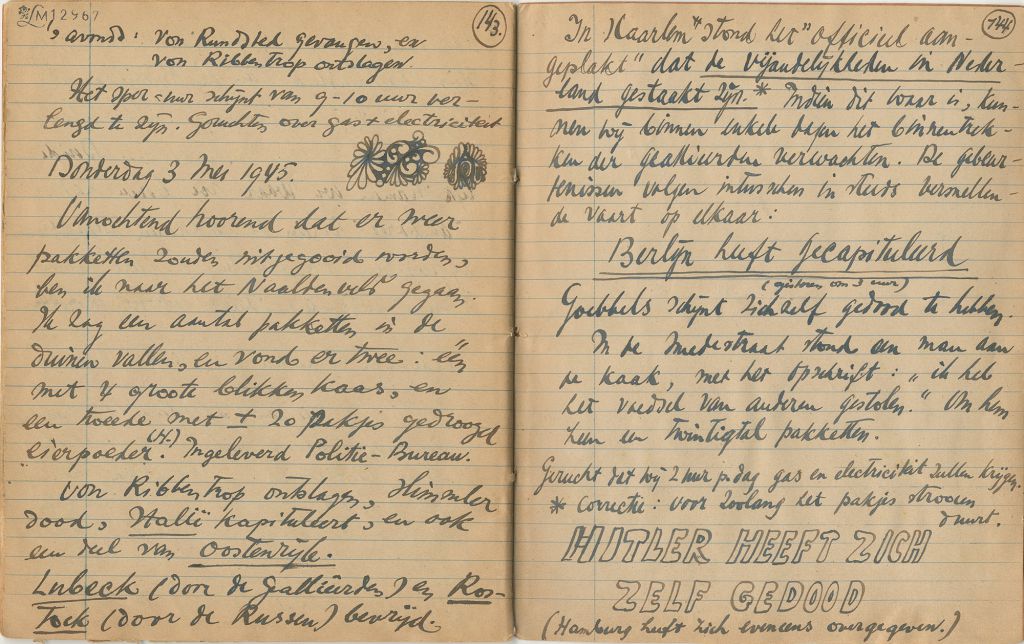 LM12967
143.
's avonds: von Rundsted gevangen, en
von Ribbentrop ontslagen.
Het sper-uur schijnt van 9-10 uur ver-
lengd te zijn. Geruchten over gas + electriciteit
Donderdag 3 Mei 1945.
Vanochtend hoorend dat er weer
pakketten zouden uitgegooid worden,
ben ik naar het Naaldenveld gegaan.
Ik zag een aantal pakketten in de
duinen vallen, en vond er twee: één
met 4 groote blikken kaas, en
een tweede met ± 20 pakjes gedroogd
eierpoeder. (14.) Ingeleverd Politie-Bureau.
von Ribbentrop ontslagen, Himmler
dood, Italië kapituleert, en ook
een deel van Oostenrijk.
Lubeck (door de Gallieerden) en Ros-
tock (door de Russen) bevrijd.
144
In Haarlem "stond het "officieel aan-
geplakt" dat de vijandelijkheden in Neder-
land gestaakt zijn.* Indien dit waar is, kun-
nen wij binnen enkele dagen het binnentrek-
ken der geallieerden verwachten. De gebeur-
tenissen volgen intusschen in steeds versnellen-
de vaart op elkaar:
Berlijn heeft gecapituleerd
(gisteren om 3 uur)
Goebbels schijnt zichzelf gedood te hebben.
In de straat stond een man aan
de kaak, met het opschrift: „ik heb
het voedsel van anderen gestolen." Om hem
heen een twintigtal pakketten.
Gerucht dat wij 2 uur p. dag gas en electriciteit zullen krijgen.
* Correctie: voor zoolang het pakjes strooien
duurt.
HITLER HEEFT ZICH
ZELF GEDOOD
(Hamburg heeft zich eveneens overgegeven.)